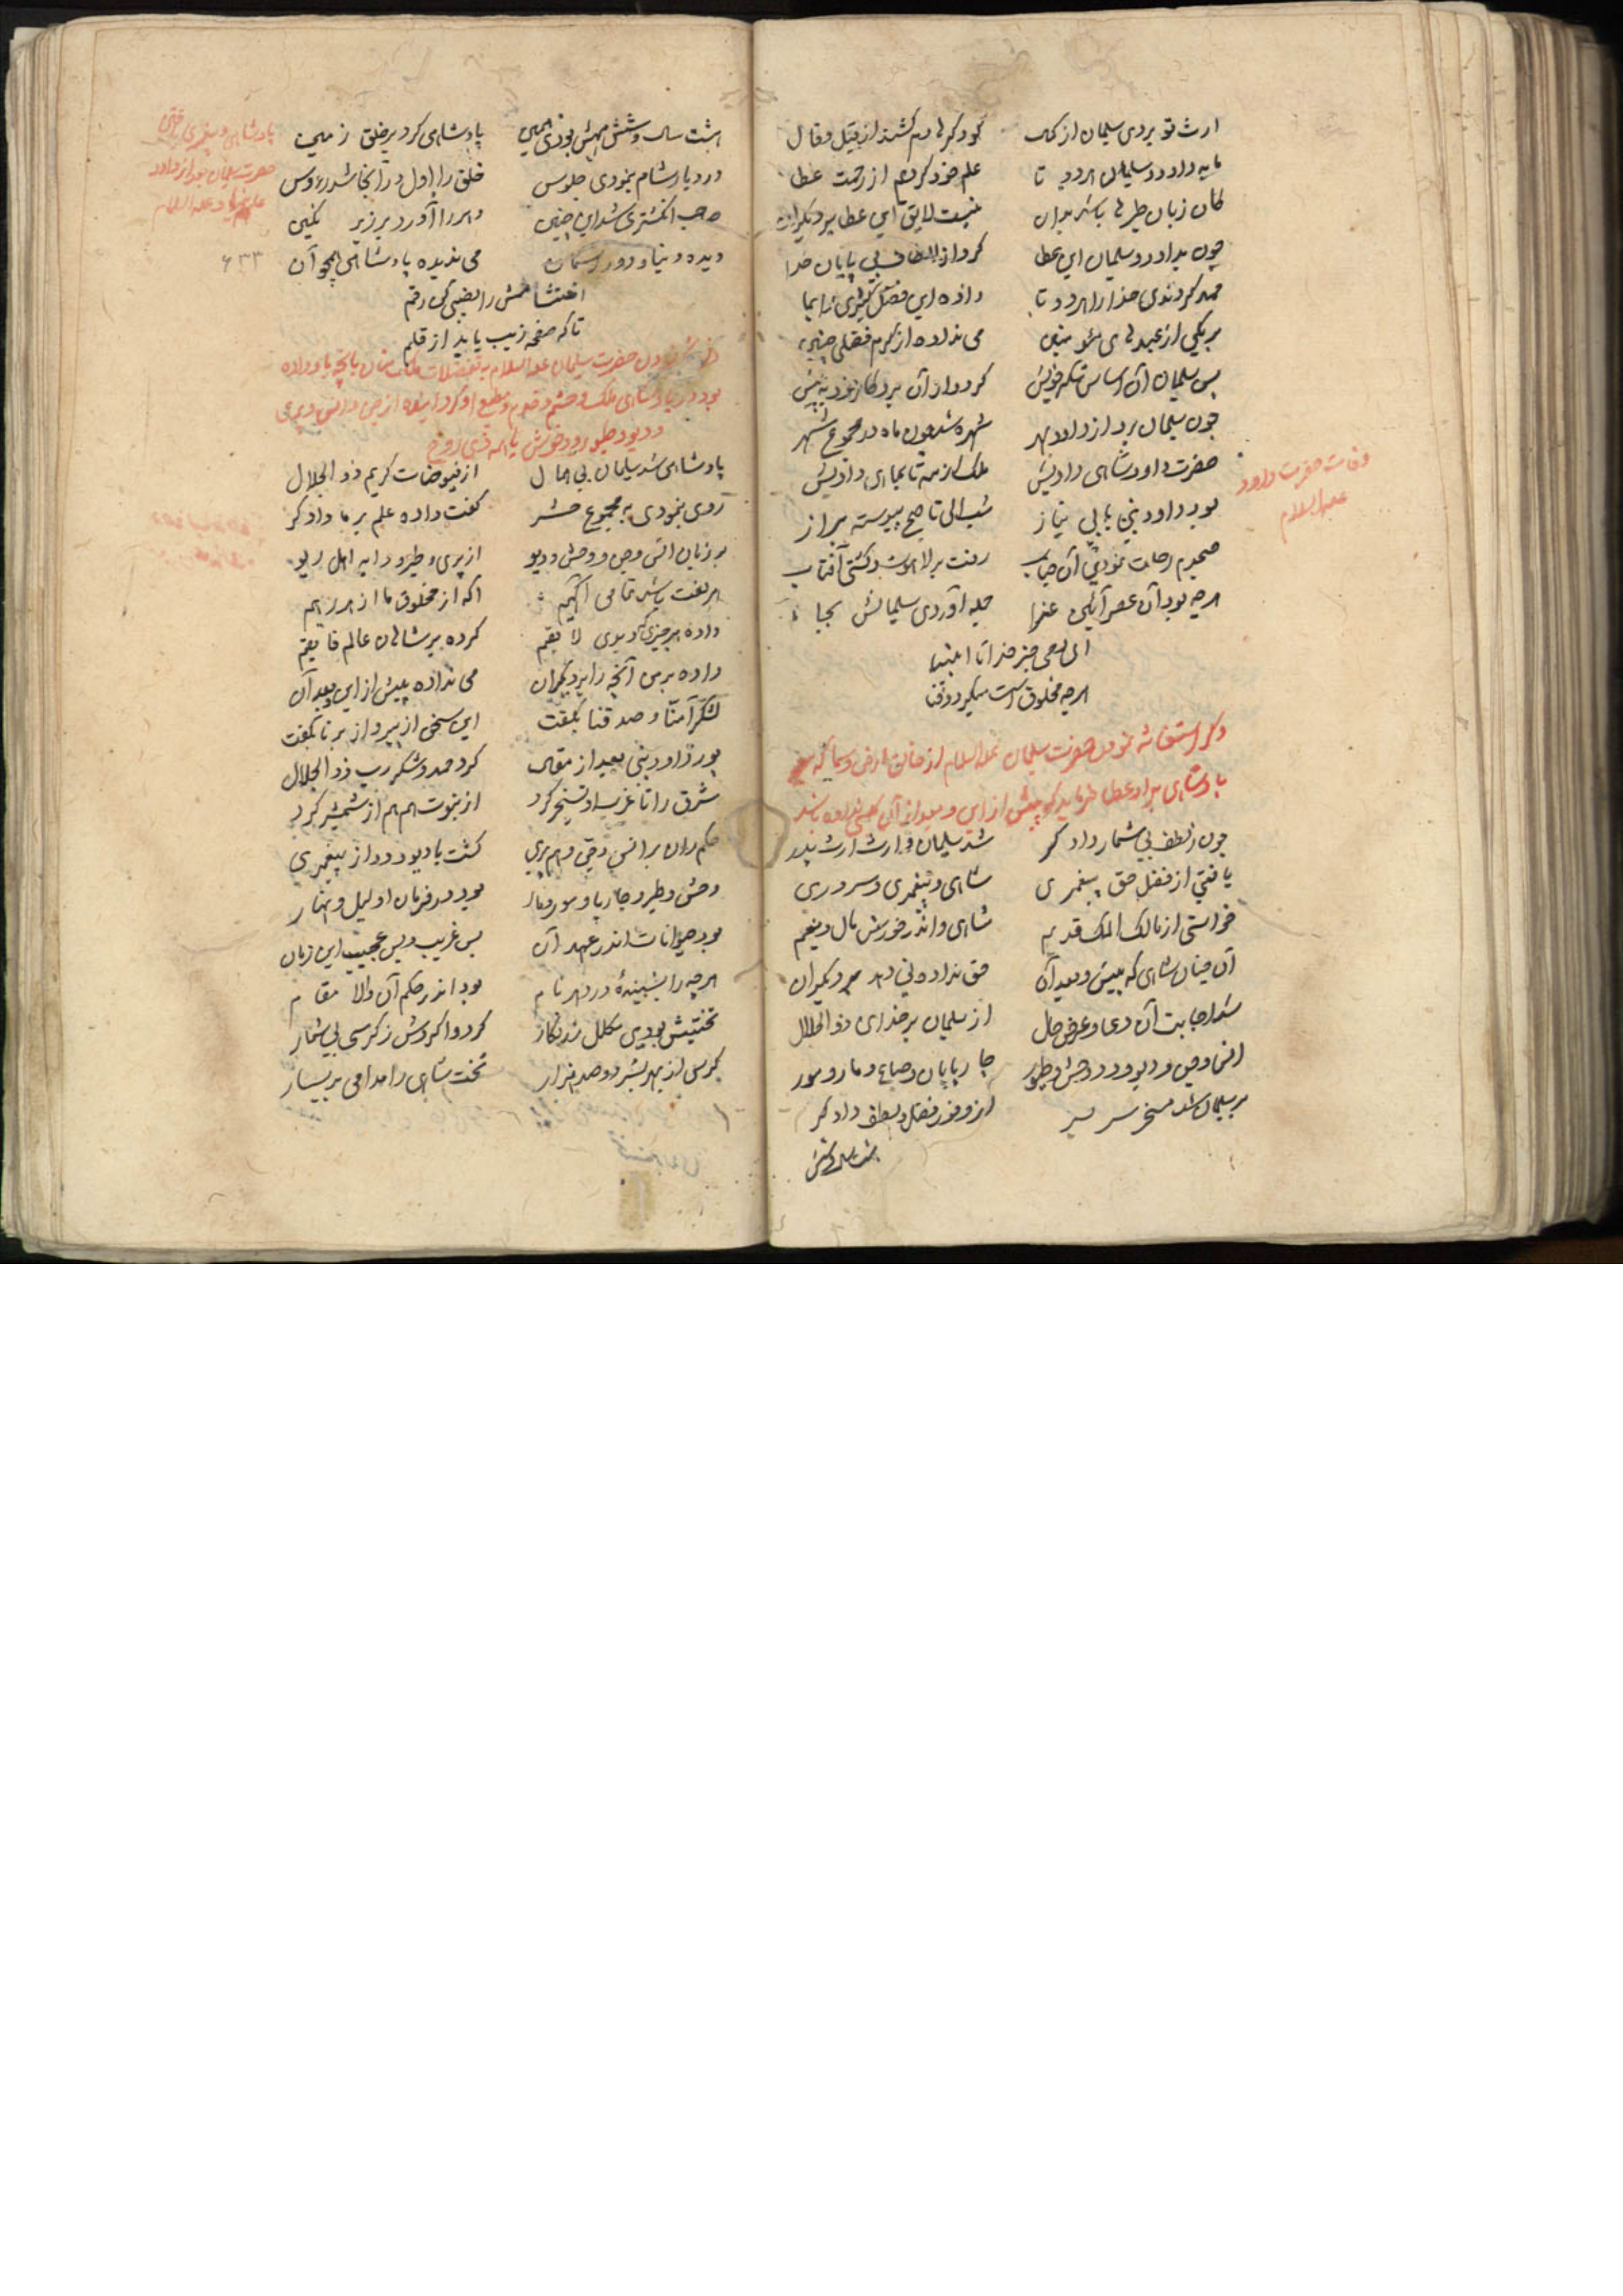 ارث تو بردی سلیمان از کمال گودگرها دم کشند از قیل و قال
ما به داود و سلیمان هر دو تا علم خود کردیم از رحمت عطا
کان زبان طیرها باشد بدان نیست لایق این عطا بر دیگران
چون بداود و سلیمان این عطا کرد از الطاف بی پایان خدا
حمد کردندی خدا را هر دو تا داده این فضل
بر یکی از عبدهای مؤمنین می نداده از کرم فضلی چنین
پس سلیمان آن اساس شکر خویش کرد
چون سلیمان برد از داود بهر شهره شد چون ماه در مجموع شهر
حضرت داود شاهی دادیش ملک از مه تا بماهی دادیش
بود داود نبی با بی نیاز شب الی تا صبح پیوسته براز
صبحدم رحلت نمودی آن جناب رفت بر لاهوت کشتی آفتاب
هر چه بود آن عصر آئین عزا جمله آوردی سلیمانش بجا
جز خدا
هر چه مخلوق است میگیرد فنا
وفات حضرت داود
علیه السلام
ذکر استغاثه نمودن حضرت سلیمان علیه السلام از خالق ارض و سما که
پادشاهی باو عطا فرماید که پیش از این و بعد از آن کسی نداده باشد
چون ز لطف بی شمار دادگر شد سلیمان وارث ارث پدر
یافتی از فضل حق پیغمبری شاهی و پیغمبری و سروری
خواستی از مالک الملک قدیم شاهی و اندر خورش مال و نعیم
آن چنان شاهی که پیش و بعد آن حق نداده نی دهد بر دیگران
شد اجابت آن دعا و عرض حال از سلیمان بر خدای ذو الجلال
انس و جن و دیو و دد وحش و طیور چارپایان و سباع و مار و مور
بر سلیمان شد مسخر سر بسر از وفور فضل و لطف دادگر
هشت سال و شش
هشت سال و شش مهش بودی همین پادشاهی کرد بر خلق زمین
در دیار شام بنمودی جلوس خلق را اول در آنجا شد رءوس
صاحب انگشتری شد این چنین دهر را آورد بر زیر نگین
دیده دنیا و دور آسمان می ندیده پادشاهی همچو آن
احتشامش را بضبی کن رقم
تا که صفحه زیب یابد از قلم
پادشاهی و پیغمبری یافتن
حضرت سلیمان بعد از داود
علیهما السلام
۶۳۳
حضرت سلیمان علیه السلام به تفضلات ملک منان بآنچه باو داده
بود در پادشاهی ملک و حشم و قوم و مطیع او گردانیده از جن و انس و پری
و دیو و طیور و وحوش با همه ذی روح
پادشاهی شد سلیمان بی همال از فیوضات کریم ذو الجلال
روی بنمودی به مجموع حشر گفت داده علم بر ما دادگر
بر زبان انس و جن و وحش و دیو از پری و طیر و دابه اهل ریو
هر لغت باشد تمامی آگهیم آگه از مخلوق ما از هر رهیم
داده هر چیزی که دیدی لایقم کرده بر شاهان عالم فایقم
داده بر من آنچه را بر دیگران می نداده پیش از این و بعد آن
لشگر آمنا و صدقنا بگفت این سخن از پیر و از برنا بگفت
پور داود نبی بعد از مقال کرد حمد و شکر رب ذو الجلال
شرق را تا غرب او تسخیر کرد از نبوت هم هم از شمشیر کرد
حکمران بر انس و جن و هم پری گشت با دیو و دد از پیغمبری
وحش و طیر و چارپا و مور و مار بود در فرمان او لیل و نهار
بود حیوانات اندر عهد آن بس غریب و بس عجیب این زمان
هر چه را بشنیدهٔ در دهر نام بود اندر حکم آن والا مقام
تختیش بودی مکلل زرنگار گرد واگردش ز کرسی بی شمار
کرسی از بهر بشر دو صد هزار تخت شاهی را مدامی بر یسار